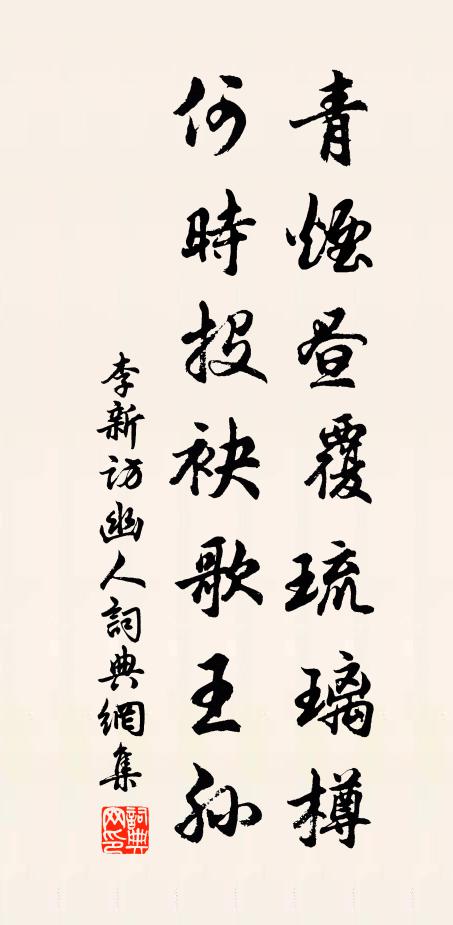 青煙昼覆琉璃樽
何時投袂歌王孫
李新訪幽人詞典網集
詞典网印